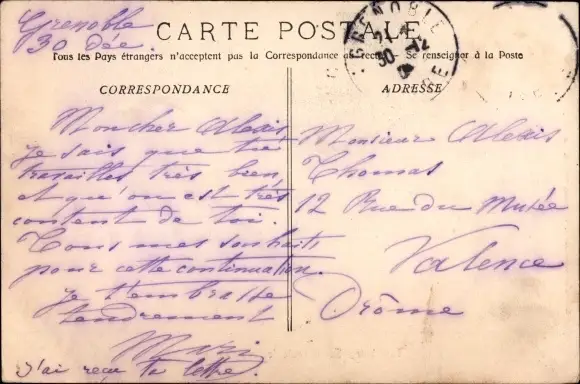 Grenoble
30 Déc.
CARTE POSTALE
Tous les Pays étrangers n'acceptent pas la Correspondance au recto. Se renseigner à la Poste
GRENOBLE
30 - 12
CORRESPONDANCE
Mon cher Alexis
je sais que tu
travailles très bien,
et qu'on est très
content de toi.
Tous mes souhaits
pour cette continuation.
Je t'embrasse
tendrement
J'ai reçu ta lettre.
ADRESSE
Monsieur Alexis
Thomas
12 Rue du Musée
Valence
Drôme